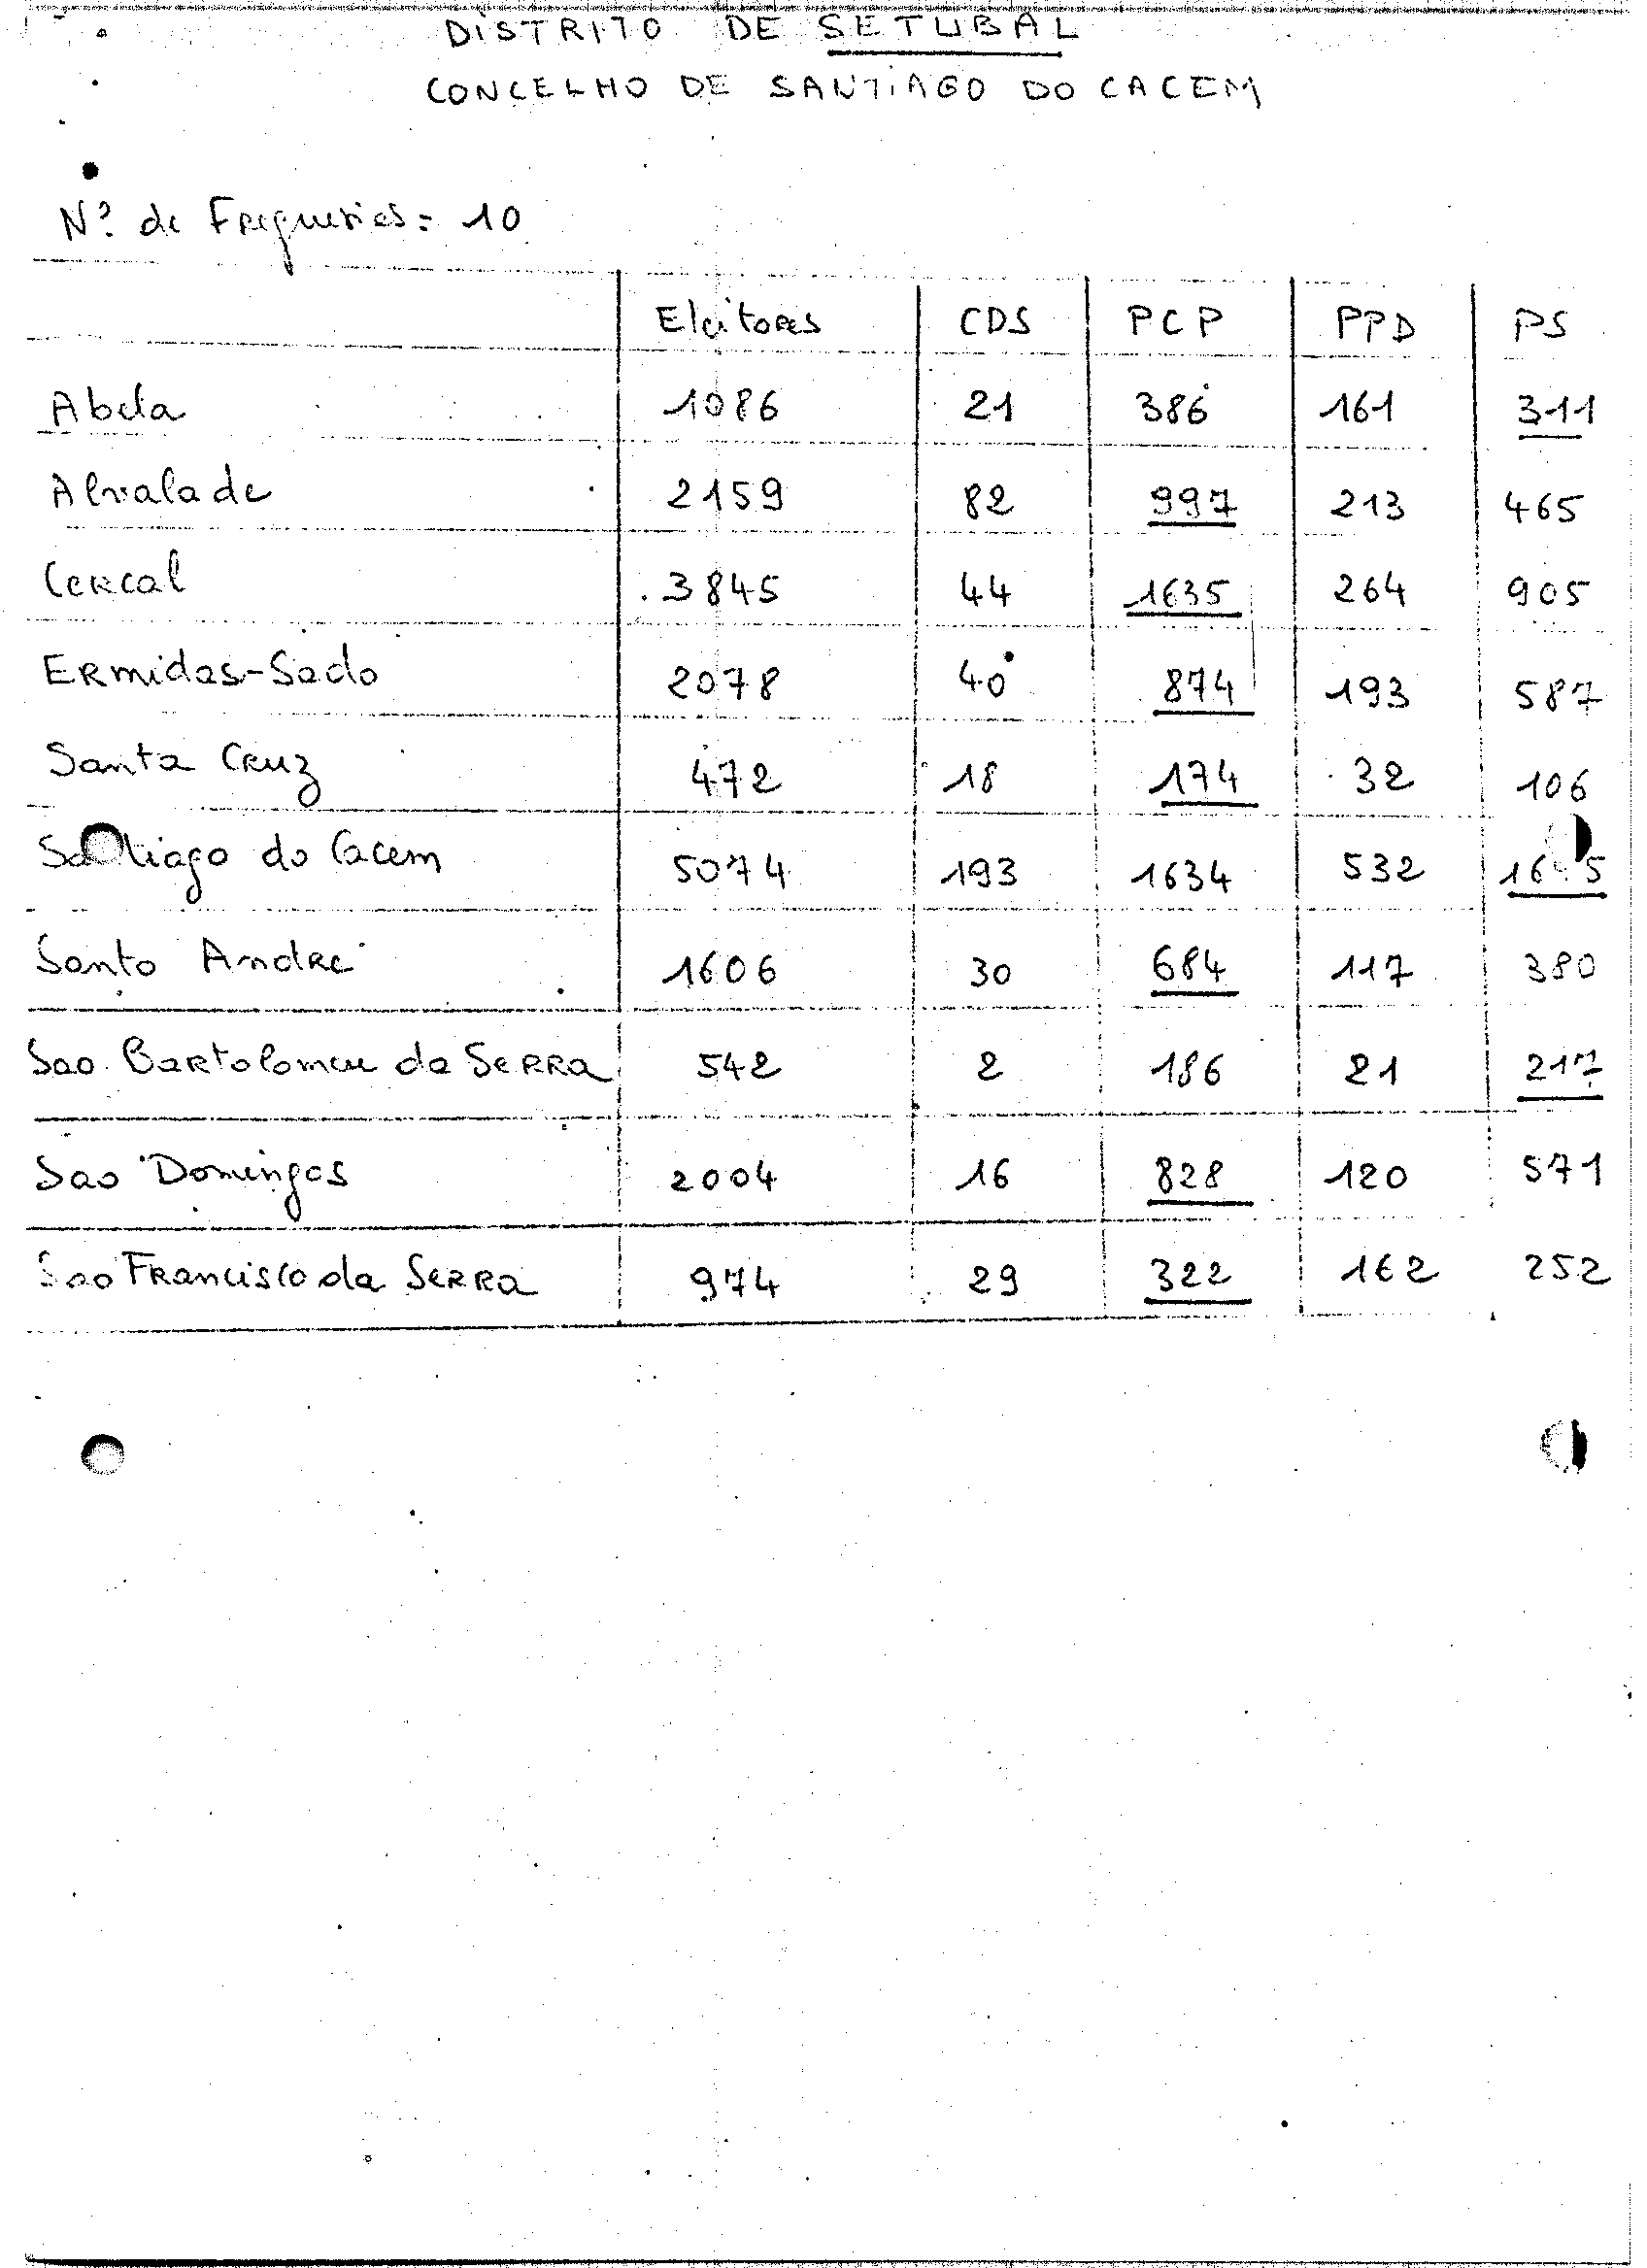 DISTRITO DE SETUBAL
CONCELHO DE SANTIAGO DO CACEM
Nº de Freguesias = 10
Eleitores CDS PCP PPD PS
Abela 1086 21 386 161 311
Alvalade 2159 82 997 213 465
Cercal 3845 44 1635 264 905
Ermidas-Sado 2078 40 874 193 587
Santa Cruz 472 18 174 32 106
Santiago do Cacem 5074 193 1634 532
Santo André 1606 30 684 117 380
Sao Bartolomeu da Serra 542 2 186 21 217
Sao Domingos 2004 16 828 120 571
Sao Francisco da Serra 974 29 322 162 252